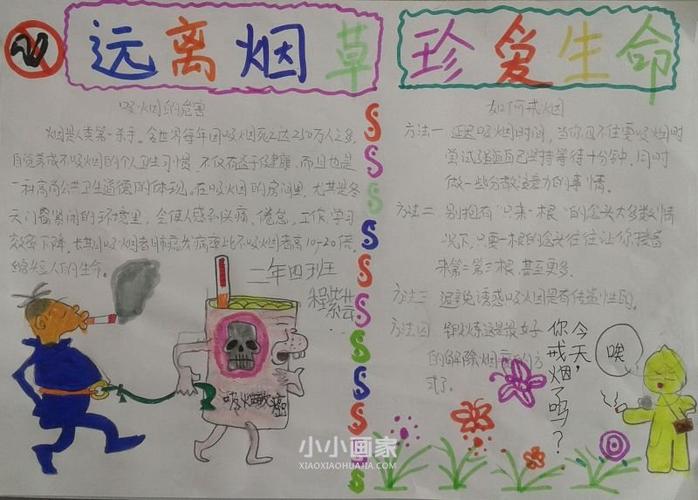 远离烟草
珍爱生命
吸烟的危害
烟是人类第一杀手。全世界每年因吸烟死亡达250万人之多,
自觉养成不吸烟的个人卫生习惯,不仅有益于健康,而且也是
一种高尚公共卫生道德的体现。在吸烟的房间里,尤其是冬
天门窗紧闭的环境里,会使人感到头痛、倦怠,工作、学习
效率下降,尤其以吸烟者肺癌发病率比不吸烟者高10-20倍,
缩短人们的生命。
二年四班
吸烟致癌
如何戒烟
方法一 延迟吸烟时间,当你忍不住要吸烟时
尝试延迟自己坚持等待十分钟,同时
做一些分散注意力的事情。
方法二 别抱有“只来一根”的念头大多数情
况下,只要一根的念头往往让你接着
来第二第三根,甚至更多。
方法三 避免诱惑吸烟是有传染性的。
方法四 锻炼这是最好
的解除烟瘾的方
式了。
今天,
你戒烟了吗?
唉
小小画家
XIAOXIAOHUAJIA.COM